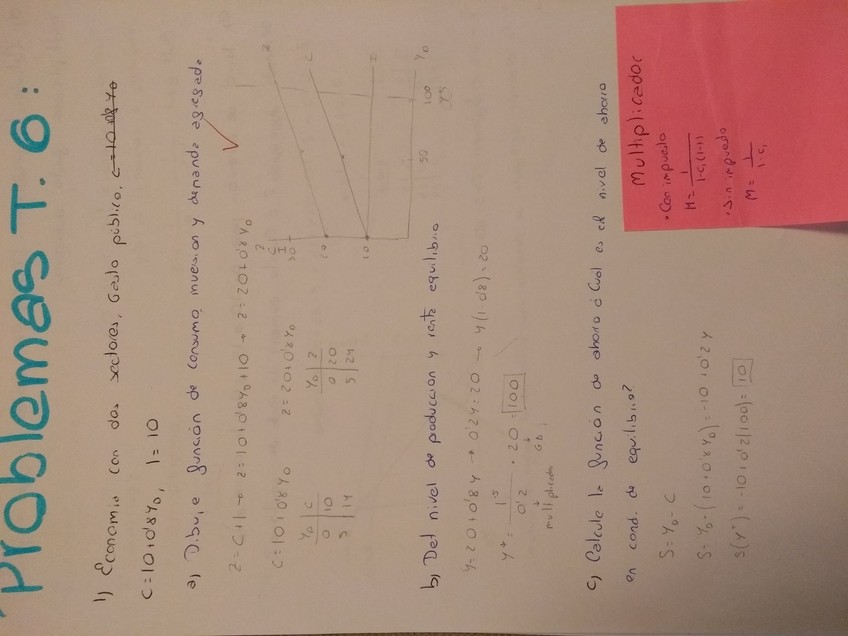 Problemas T. 6:
1) Economía con dos sectores, Gasto público, C=10+0'8Y_D
C=10+0'8Y_D, I=10
a) Dibuje función de consumo, inversión y demanda agregada
Z=C+I → Z=10+0'8Y_D+10 → Z=20+0'8Y_D
C=10+0'8Y_D Z=20+0'8Y_D
Y_D | C Y_D | Z
0 | 10 0 | 20
5 | 14 5 | 24
Z
C
I
30
20
10
Z
C
I
50
100
Y_D
b) Det nivel de producción y renta equilibrio
Y=20+0'8Y → 0'2Y=20 → Y(1-0'8)=20
Y* = 1/0'2 · 20 = 100
multiplicador
c) Calcule la función de ahorro ¿Cuál es el nivel de ahorro
en cond. de equilibrio?
S=Y_D-C
S=Y_D-(10+0'8Y_D)=-10+0'2Y
S(Y*)=-10+0'2(100)=10
Multiplicador
• Con impuesto
M = 1/1-c₁(1-t)
• Sin impuesto
M = 1/1-c₁